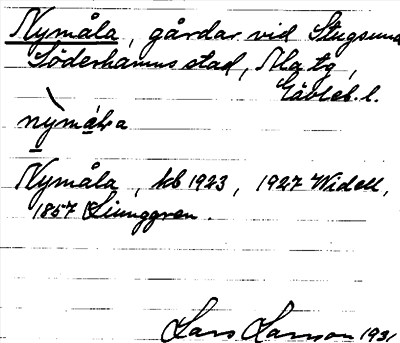 Nymåla, gårdar vid Stugsund
Söderhamns stad, Ala tg,
Gävleb. l.
nỳmála
Nymåla, kb 1923, 1927 Widell,
1857 Ljunggren.
Lars Larsson 1931